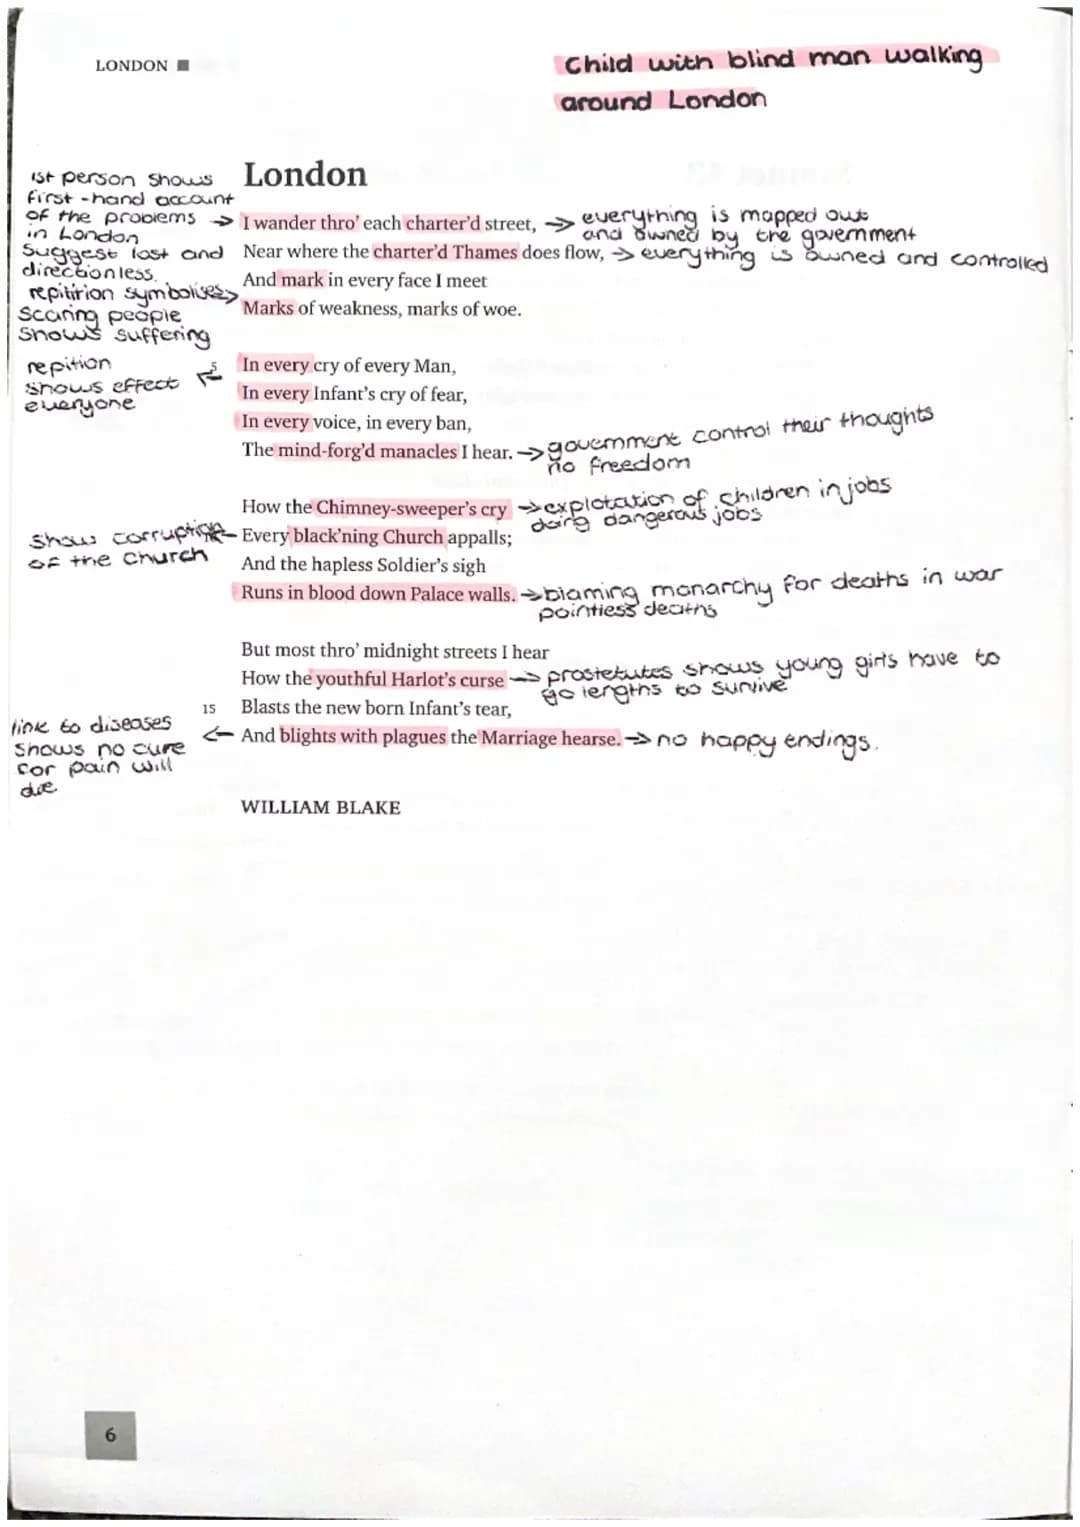 LONDON
Child with blind man walking
around London
London
1st person shows
first-hand account
of the problems →
in London
suggest lost and
directionless.
repitition symbolises
scaring people
shows suffering
I wander thro' each charter'd street, → everything is mapped out
and owned by the government
Near where the charter'd Thames does flow, → everything is owned and controlled
And mark in every face I meet
Marks of weakness, marks of woe.
repition
shows effect
everyone
5
In every cry of every Man,
In every Infant's cry of fear,
In every voice, in every ban,
The mind-forg'd manacles I hear. → government control their thoughts
no freedom
How the Chimney-sweeper's cry → explotation of children in jobs
doing dangerous jobs
show corruption
of the church
Every black'ning Church appalls;
And the hapless Soldier's sigh
Runs in blood down Palace walls. → blaming monarchy for deaths in war
pointless deaths
But most thro' midnight streets I hear
How the youthful Harlot's curse → prostetutes shows young girls have to
go lengths to survive
15 Blasts the new born Infant's tear,
link to diseases
shows no cure
for pain will
die
← And blights with plagues the Marriage hearse. → no happy endings.
WILLIAM BLAKE
6